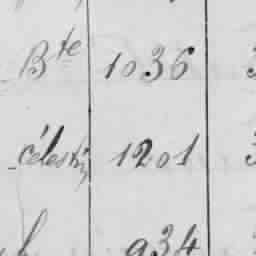 Bte 1036 3
célestin 1201 3
934